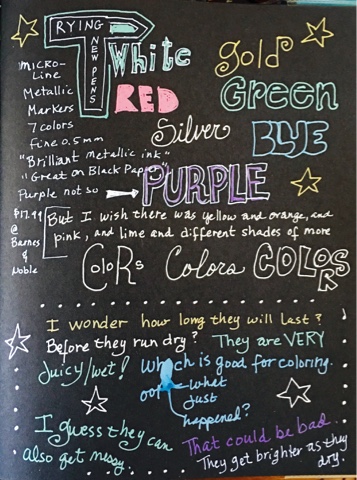 TRYING
NEW PENS
White
gold
MICRO-
Line
Metallic
Markers
7 colors
Fine 0.5mm
RED
Green
Silver
BLUE
"Brilliant metallic ink"
"Great on Black Paper"
Purple not so
PURPLE
$17.99
@
Barnes
&
Noble
But I wish there was yellow and orange, and
pink, and lime and different shades of more
COLORS Colors COLORS
I wonder how long they will last?
Before they run dry? They are VERY
Juicy/wet! Which is good for coloring.
oo! what
Just
happened?
I guess they can
also get messy.
That could be bad...
They get brighter as they
dry.